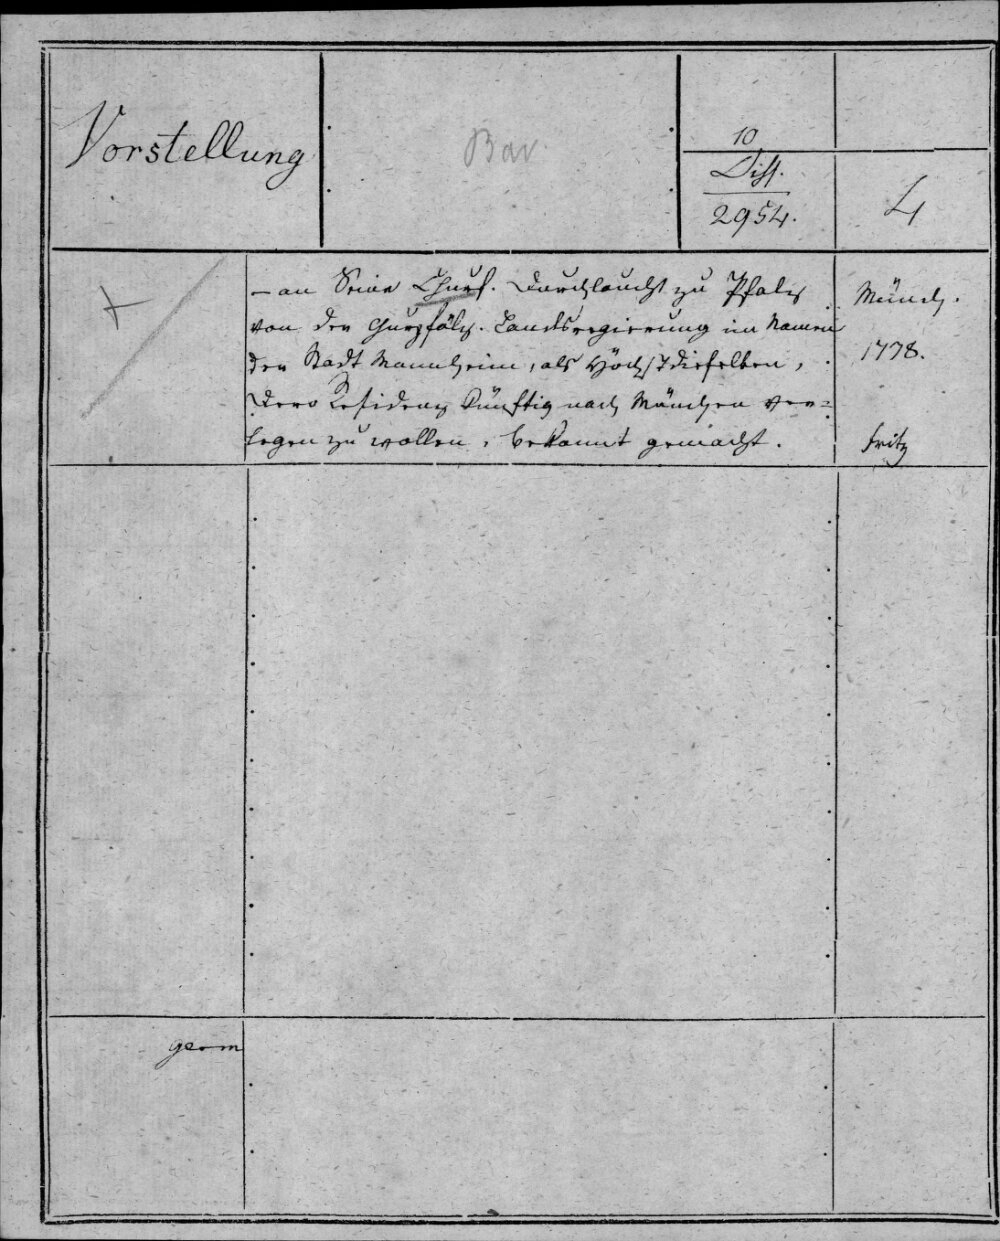 Vorstellung
Bav.
10
Diss.
2954.
4
– an Seine Churf. Durchlaucht zu Pfalz
von der Churpfälz. Landsregierung im Namen
der Stadt Mannheim, als Höchstdieselben,
Dero Residenz künftig nach München ver=
legen zu wollen, bekannt gemacht.
Münch.
1778.
Fritz
germ